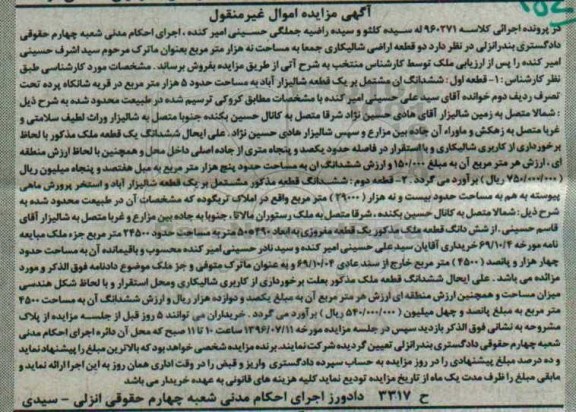 ۱۵۴
آگهی مزایده اموال غیرمنقول
در پرونده اجرائی کلاسه ۹۶۰۲۷۱ له سیده کلثو و سیده راضیه جملگی حسینی امیر کنده ، اجرای احکام مدنی شعبه چهارم حقوقی
دادگستری بندرانزلی در نظر دارد دو قطعه اراضی شالیکاری جمعا به مساحت نه هزار متر مربع بعنوان ماترک مرحوم سید اشرف حسینی
امیر کنده را پس از ارزیابی ملک توسط کارشناس منتخب به شرح آتی از طریق مزایده بفروش برساند . مشخصات مورد کارشناسی طبق
نظر کارشناس : ۱- قطعه اول : ششدانگ ان مشتمل بر یک قطعه شالیزار آباد به مساحت حدود ۵ هزار متر مربع در قریه اشنکاه پرده تحت
تصرف ردیف دوم خوانده آقای سید علی حسینی امیر کنده با مشخصات مطابق کروکی ترسیم شده در طبیعت محدود شده به شرح ذیل
: شمالا متصل به زمین شالیزار آقای هادی حسین نژاد شرقا متصل به کانال حسین بکنده جنوبا متصل به شالیزار وراث لطیف سلامتی و
غربا متصل به زهکش و ماوراء آن جاده بین مزارع و سپس شالیزار هادی حسین نژاد . علی ایحال ششدانگ یک قطعه ملک مذکور با لحاظ
برخورداری از کاربری شالیکاری و با استقرار در فاصله حدود یکصد و پنجاه متری از جاده اصلی داخل محل و همچنین با لحاظ ارزش منطقه
ای ، ارزش هر متر مربع آن به مبلغ ۱۵۰/۰۰۰ و ارزش ششدانگ ان به مساحت حدود پنج هزار متر مربع به مبل هفتصد و پنجاه میلیون ریال
(۷۵۰/۰۰۰/۰۰۰ ریال ) برآورد می گردد . ۲- قطعه دوم : ششدانگ قطعه مذکور مشتمل بر یک قطعه شالیزار آباد و استخر پرورش ماهی
پیوسته به هم به مساحت حدود بیست و نه هزار (۲۹۰۰۰ ) متر مربع واقع در املاک تربگوده که مشخصات آن در طبیعت محدود شده به
شرح ذیل : شمالا متصل به کانال حسین بکنده ، شرقا متصل به ملک رستوران مالاتا ، جنوبا به جاده بین مزارع و غربا متصل به شالیزار آقای
قاسم حسینی . از شش دانگ قطعه ملک مذکور یک قطعه مفروزی به ابعاد ۴۹۰*۵۰ متر به مساحت حدود ۲۴۵۰۰ متر مربع جزء ملک مبایعه
نامه مورخه ۶۹/۱۰/۴ خریداری آقایان سید علی حسینی امیر کنده و سید نادر حسینی امیر کنده محسوب و باقیمانده آن به مساحت حدود
چهار هزار و پانصد ( ۴۵۰۰ ) متر مربع خارج از سند عادی ۶۹/۱۰/۰۴ و به عنوان ماترک متوفی و جز ملک موضوع دادنامه فوق الذکر و مورد
مزائده می باشد . علی ایحال ششدانگ قطعه ملک مذکور بعلت برخورداری از کاربری شالیکاری ومحل استقرار و با لحاظ شکل هندسی
میزان مساحت و همچنین ارزش منطقه ای ارزش هر متر مربع آن به مبلغ یکصد و دوازده هزار ریال و ارزش ششدانگ آن به مساحت ۴۵۰۰
متر مربع به مبلغ پانصد و چهل میلیون ( ۵۴۰/۰۰۰/۰۰۰ ریال) برآورد می گردد . خریداران می توانند ۵ روز قبل از جلسه مزایده از پلاک
مشروحه به نشانی فوق الذکر بازدید سپس در جلسه مزایده مورخه ۱۳۹۶/۰۷/۱۱ ساعت ۱۰ تا ۱۱ صبح که محل آن دائره اجرای احکام مدنی
شعبه چهارم حقوقی دادگستری بندرانزلی تعیین گردیده شرکت نمایند. برنده مزایده شخصی خواهد بود که بالاترین مبلغ را پیشنهاد نماید
و ده درصد مبلغ پیشنهادی را در روز مزایده به حساب سپرده دادگستری واریز و قبض را در وقت اداری همان روز به این اجرا ارائه نماید و
مابقی مبلغ را ظرف مدت یک ماه از تاریخ مزایده تودیع نماید کلیه هزینه های قانونی به عهده خریدار می باشد
ح ۳۳۱۷ دادورز اجرای احکام مدنی شعبه چهارم حقوقی انزلی – سیدی